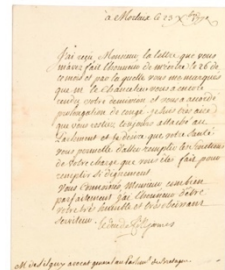 à Morlaix le 23 Xbre
J'ai reçû, Monsieur la lettre que vous
m'avez fait l'honneur de m'écrire le 26 de
ce mois et par laquelle vous me marquez
que M. le Chancelier vous a encore
votre et vous a accordé
prolongation de congé. je suis
que vous restiez toujours attaché au
Parlement et je desire que votre santé
vous permette d'aller remplir les fonctions
de votre charge que vous etes fait pour
remplir si dignement.
Vous connoissez, Monsieur combien
parfaitement j'ai l'honneur d'être
votre très humble et très obéissant
serviteur.
avocat general au Parlemt de Bretagne